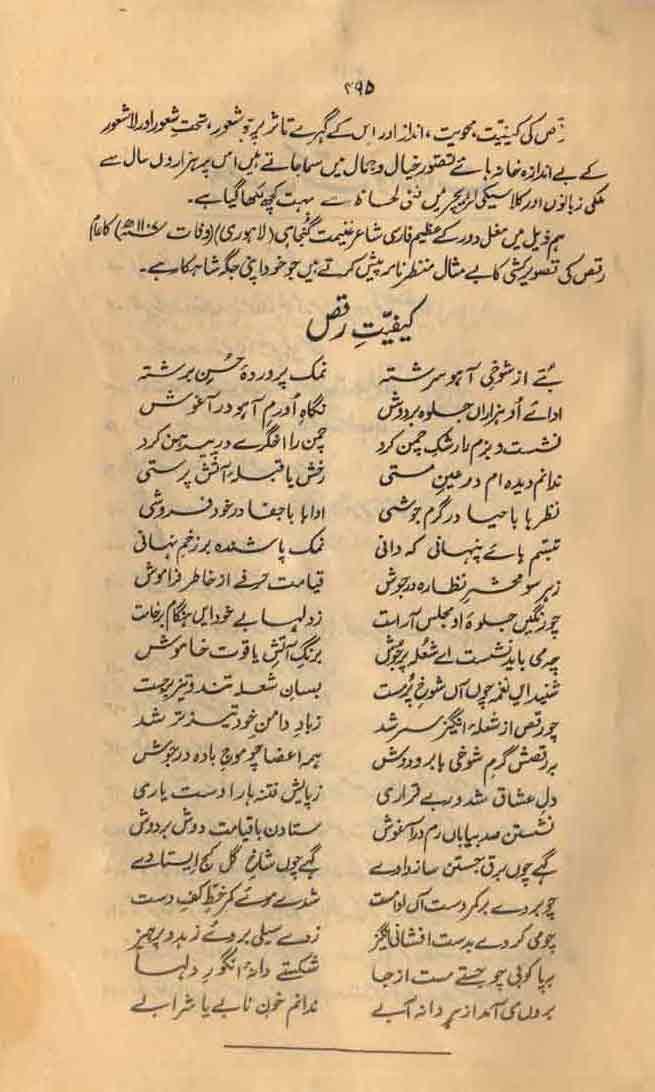 ۴۹۵
رقص کی کیفیت، محویت، انداز اور اس کے گہرے تاثر پر تو شعور، تحت شعور اور لاشعور
کے بے اندازہ خانہ ہائے تصور خیال و جمال میں سما جاتے ہیں اس پر ہزاروں سال سے
ملکی زبانوں اور کلاسیکی لٹریچر میں فنی لحاظ سے بہت کچھ لکھا گیا ہے۔
ہم ذیل میں مغل دور کے عظیم فارسی شاعر غنیمت کنجاہی (لاہوری) (وفات ۱۱۰۷ھ) کا عام
رقص کی تصویر کشی کا بے مثال منظر نامہ پیش کرتے ہیں جو خود اپنی جگہ شاہکار ہے۔
کیفیّتِ رقص
بُتے از شوخیِ آہو سرشتہ نمک پروردۂ حُسنِ برشتہ
ادائے اُو ہزاراں جلوہ بردوش نگاہِ اُو رمِ آہو در آغوش
نشست و بزم را رشکِ چمن کرد چمن را اخگرے در پیرہن کرد
ندانم دیدہ ام در عینِ مستی رخش یا قبلۂ آتش پرستی
نظر ہا با حیا در گرم جوشی ادا ہا با جفا در خود فروشی
تبسّم ہائے پنہانی کہ دانی نمک پاشندہ بر زخمِ نہانی
زہر سو محشرِ نظارہ در جوش قیامت حرفے از خاطر فراموش
چو رنگیں جلوۂ او مجلس آراست ز دلہا بے خود ایں ہنگام برخاست
چہ می باید نشست اے شعلہ پرجوش برنگِ آتشِ یاقوت خاموش
شنید ایں نغمہ چوں آں شوخِ پُر مست بسانِ شعلہ تند و تیز برجست
چو رقص از شعلہ انگیز سر شد ز بادِ دامنِ خود تیز تر شد
برقصش گرمِ شوخی ہا برو دوش ہمہ اعضا چو موجِ بادہ در جوش
دلِ عشاق شد در بے قراری ز پایش فتنہ ہا را دست یاری
نشستن صد بیاباں رم در آغوش ستادن با قیامت دوش بردوش
گہے چوں برق جستن ساز دادے گہے چوں شاخِ گل کج ایستادے
چو بردے بر کمر دست آں شدے موئے کمر خطِ کفِ دست
چو می کردے بدست افشانی انگیز زدے سیلی بروئے زہد و پرہیز
بپا کوبی چو جستے مست از جا شکستے دانۂ انگورِ دلہا
بروں می آمد از ہر دانہ آبے ندانم خونِ نابے یا شرابے